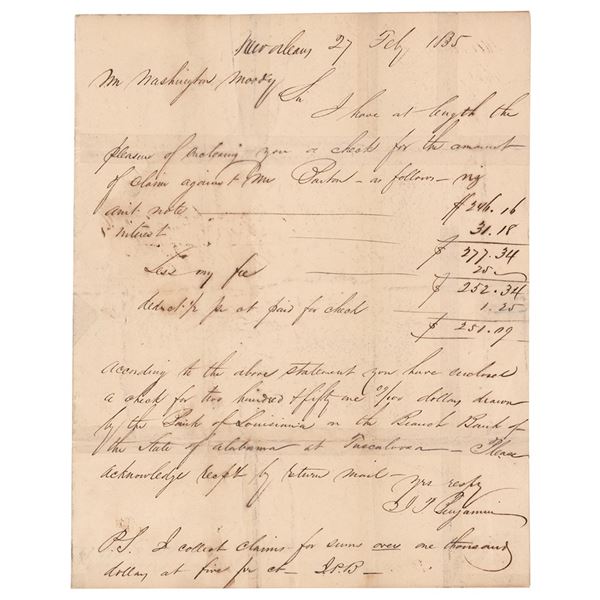 New Orleans 27 Feby 1835
Mr Washington Moody
Sir
I have at length the
pleasure of enclosing you a check for the amount
of claim against Mr Paxton — as follows — viz
amt. note $ 246.16
interest 31.18
$ 277.34
Less my fee 25
$ 252.34
deduct ½ pr ct paid for check 1.25
$ 251.09
According to the above statement you have enclosed
a check for two hundred & fifty one 09/100 dollars drawn
by the Bank of Louisiana on the Branch Bank of
the State of Alabama at Tuscaloosa — Please
acknowledge recpt by return mail —
yrs respy
J P Benjamin
P.S. I collect claims for sums over one thousand
dollars at five pr ct — J.P.B —